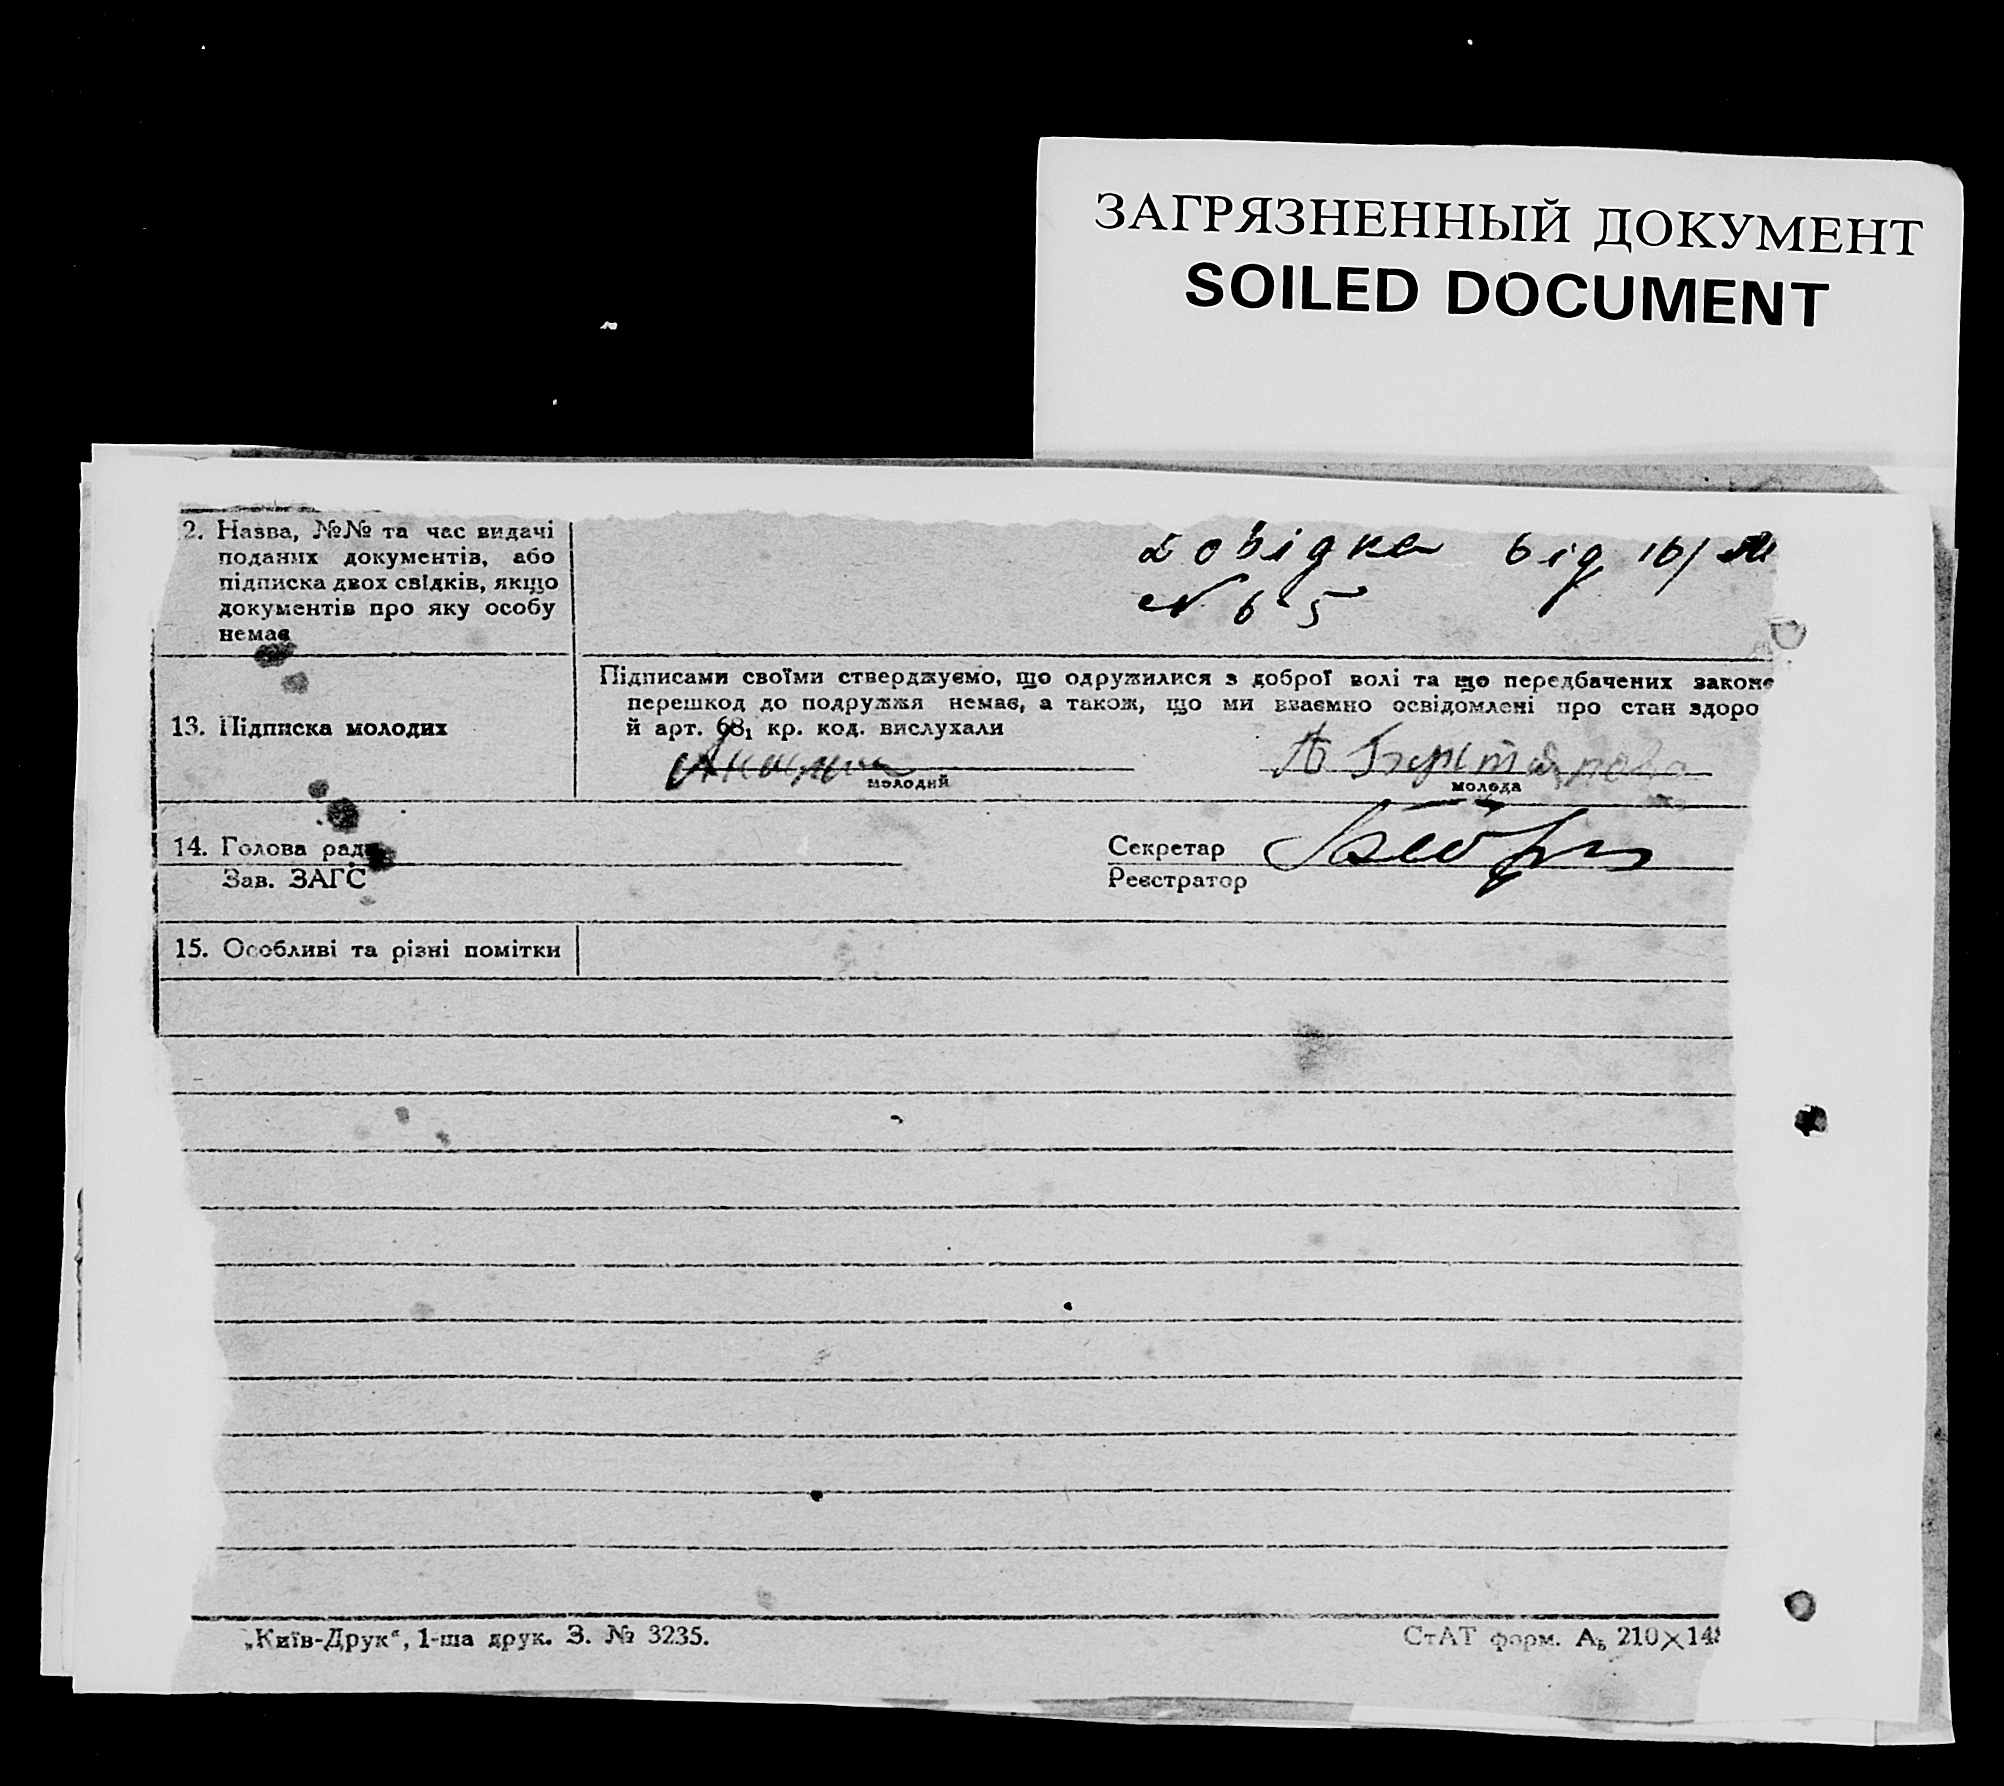 ЗАГРЯЗНЕННЫЙ ДОКУМЕНТ
SOILED DOCUMENT
2. Назва, №№ та час видачі
поданих документів, або
підписка двох свідків, якщо
документів про яку особу
немає
Довідка від 16/
N 65
13. Підписка молодих
Підписами своїми стверджуємо, що одружилися з доброї волі та що передбачених законо
перешкод до подружжя немає, а також, що ми взаємно освідомлені про стан здоро
й арт. 68₁ кр. код. вислухали
молодий
молода
14. Голова рад
Зав. ЗАГС
Секретар
Реєстратор
15. Особливі та різні помітки
„Київ-Друк“, 1-ша друк. З. № 3235.
СтАТ форм. А₅ 210×148